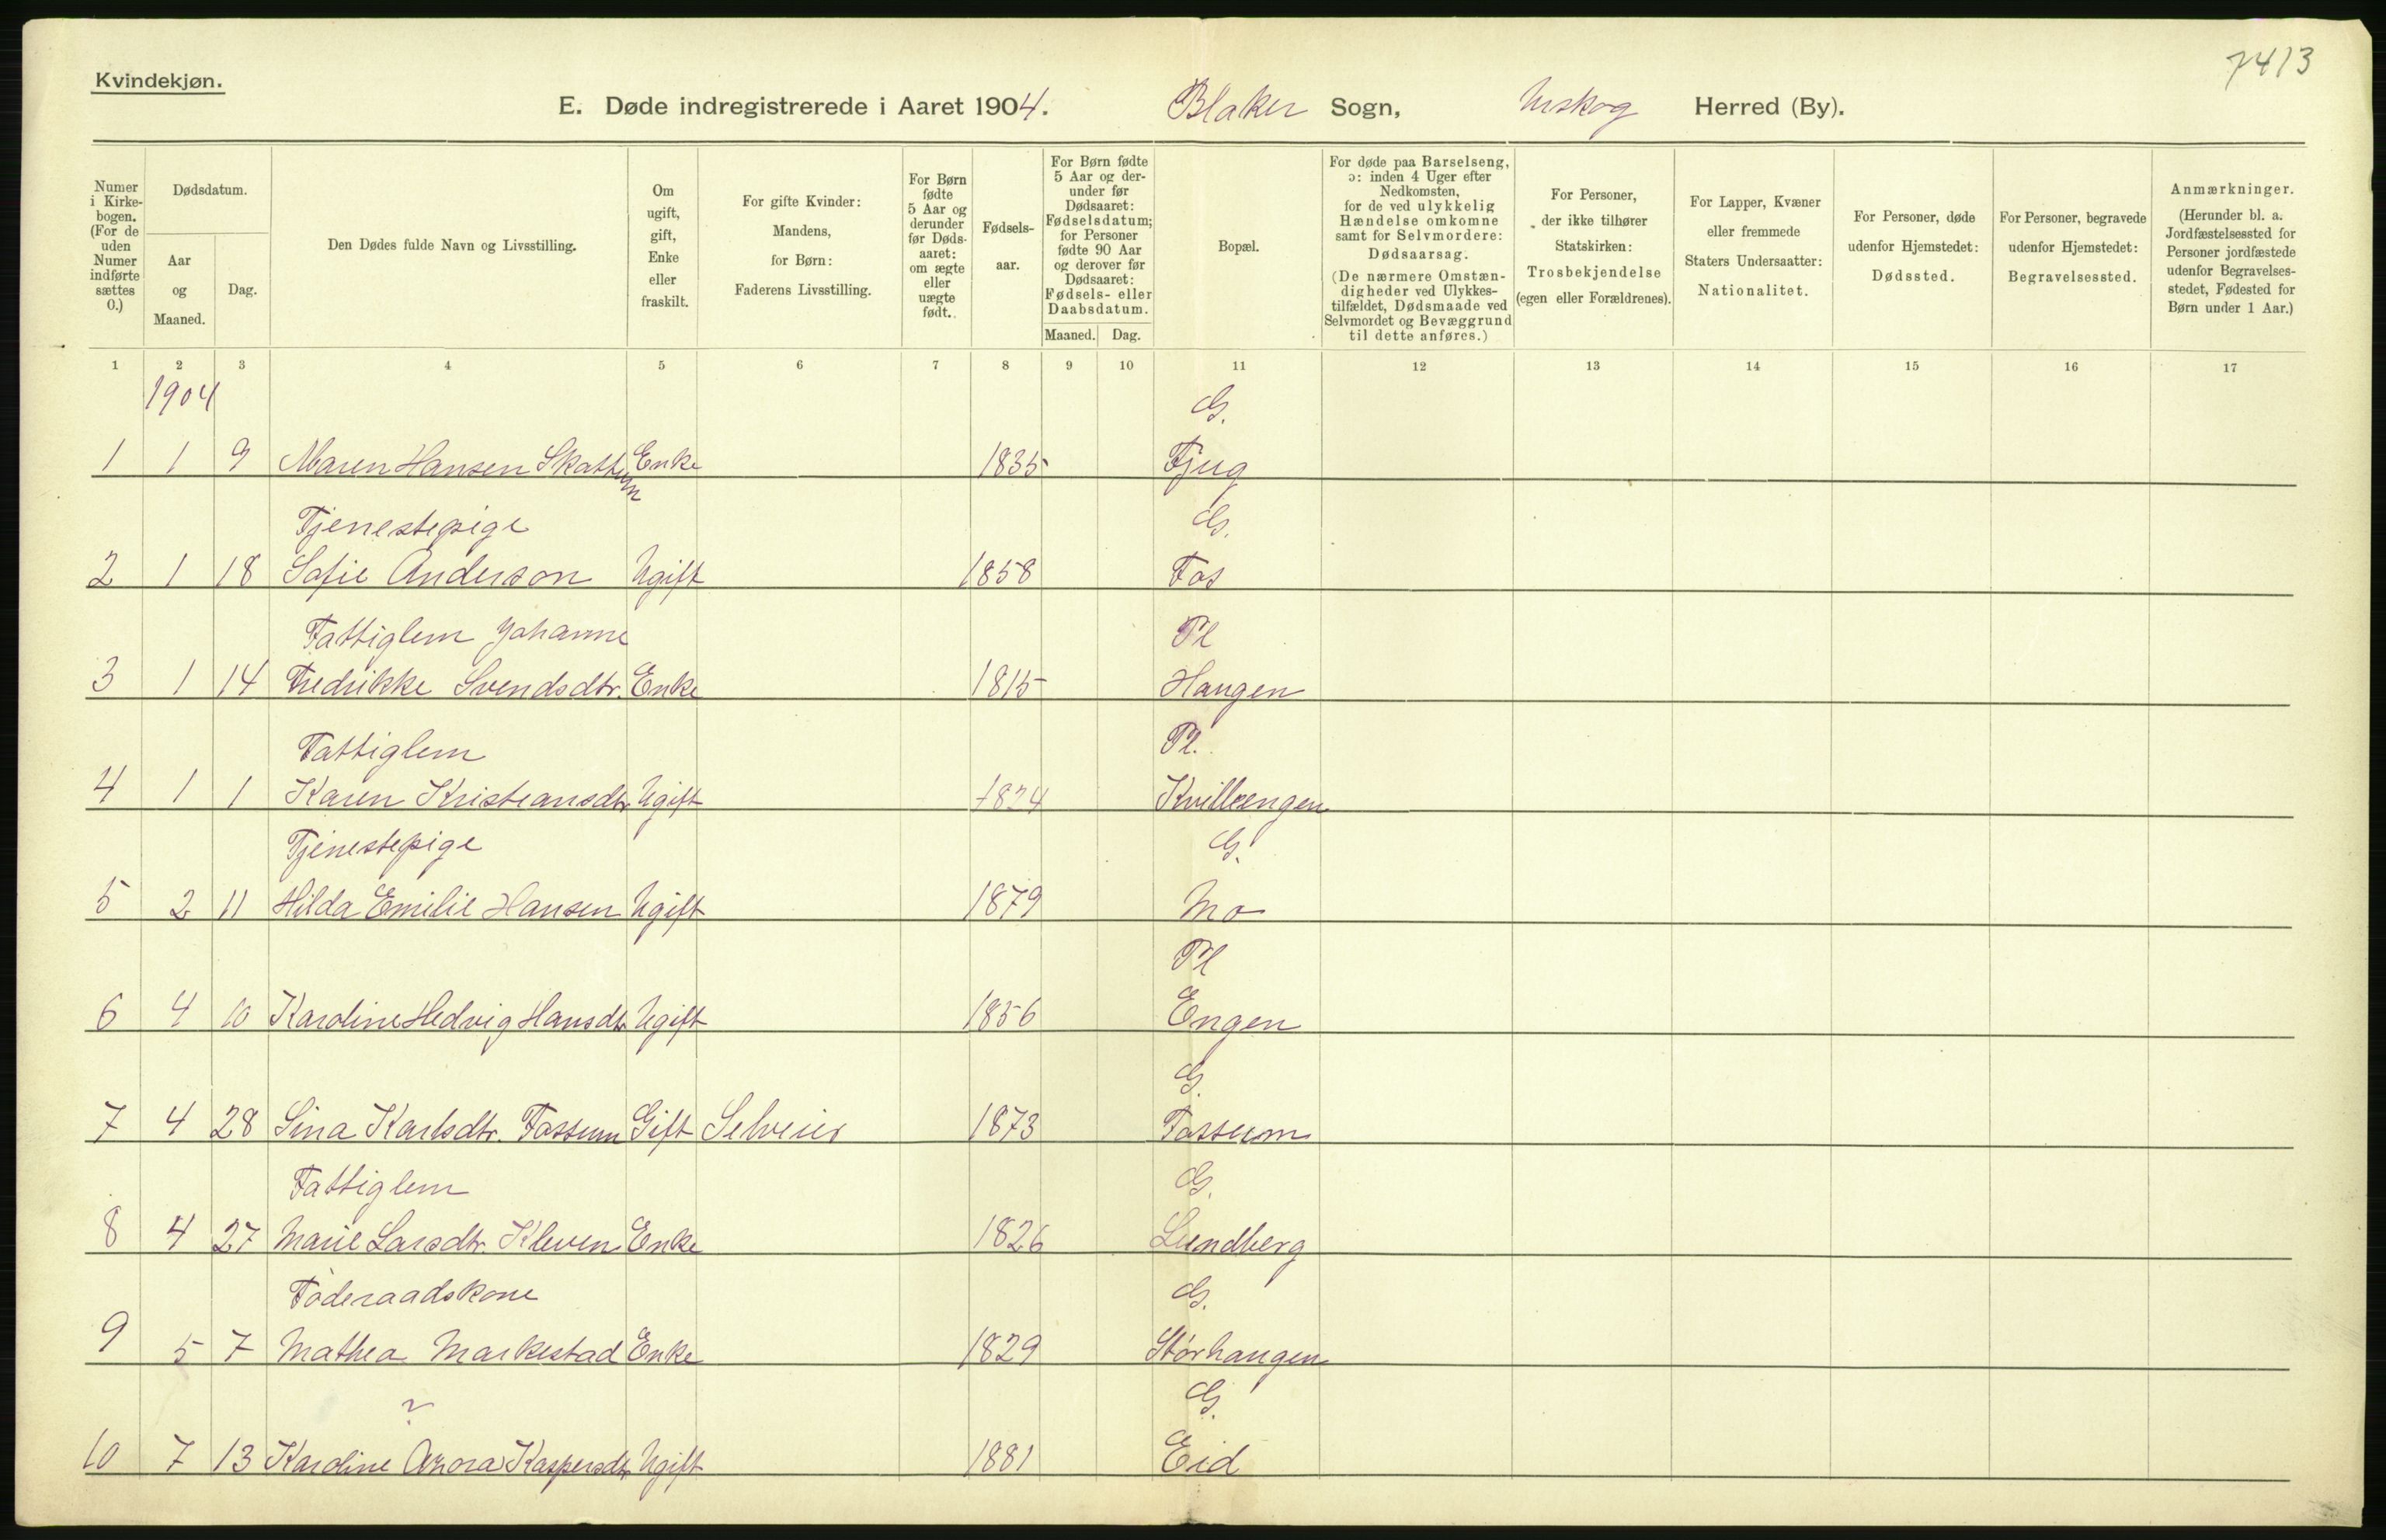 7413
Kvindekjøn.
E. Døde indregistrerede i Aaret 1904. Blaker Sogn, Urskog Herred (By).
Numer i Kirke-bogen. (For de uden Numer indførte sættes 0.)
Dødsdatum.
Aar og Maaned.
Dag.
Den Dødes fulde Navn og Livsstilling.
Om ugift, gift, Enke eller fraskilt.
For gifte Kvinder: Mandens, for Børn: Faderens Livsstilling.
For Børn fødte 5 Aar og derunder før Døds-aaret: om ægte eller uægte født.
Fødsels-aar.
For Børn fødte 5 Aar og der-under før Dødsaaret: Fødselsdatum; for Personer fødte 90 Aar og derover før Dødsaaret: Fødsels- eller Daabsdatum.
Maaned. Dag.
Bopæl.
For døde paa Barselseng, ɔ: inden 4 Uger efter Nedkomsten, for de ved ulykkelig Hændelse omkomne samt for Selvmordere: Dødsaarsag. (De nærmere Omstæn-digheder ved Ulykkes-tilfældet, Dødsmaade ved Selvmordet og Bevæggrund til dette anføres.)
For Personer, der ikke tilhører Statskirken: Trosbekjendelse (egen eller Forældrenes).
For Lapper, Kvæner eller fremmede Staters Undersaatter: Nationalitet.
For Personer, døde udenfor Hjemstedet: Dødssted.
For Personer, begravede udenfor Hjemstedet: Begravelsessted.
Anmærkninger. (Herunder bl. a. Jordfæstelsessted for Personer jordfæstede udenfor Begravelses-stedet, Fødested for Børn under 1 Aar.)
1 2 3 4 5 6 7 8 9 10 11 12 13 14 15 16 17
1904 G.
1 1 9 Maren Hansen Skattum Enke 1835 Fjug
Tjenestepige G.
2 1 18 Sofie Anderson Ugift 1858 Fos
Fattiglem Johanne Pl
3 1 14 Fredrikke Svendsdtr. Enke 1815 Haugen
Fattiglem Pl.
4 1 1 Karen Kristiansdtr Ugift 1824 Kvillengen
Tjenestepige G.
5 2 11 Hilda Emilie Hansen Ugift 1879 Mo
Pl
6 4 10 Karoline Hedvig Hansdtr Ugift 1856 Engen
G.
7 4 28 Sina Karlsdtr. Fossum Gift Selveier 1873 Fossum
Fattiglem G.
8 4 27 Marie Larsdtr. Kleven Enke 1826 Lundberg
Føderaadskone G.
9 5 7 Mathea Markestad Enke 1829 Størhaugen
? G.
10 7 13 Karoline Azora Kaspersdtr Ugift 1881 Eid